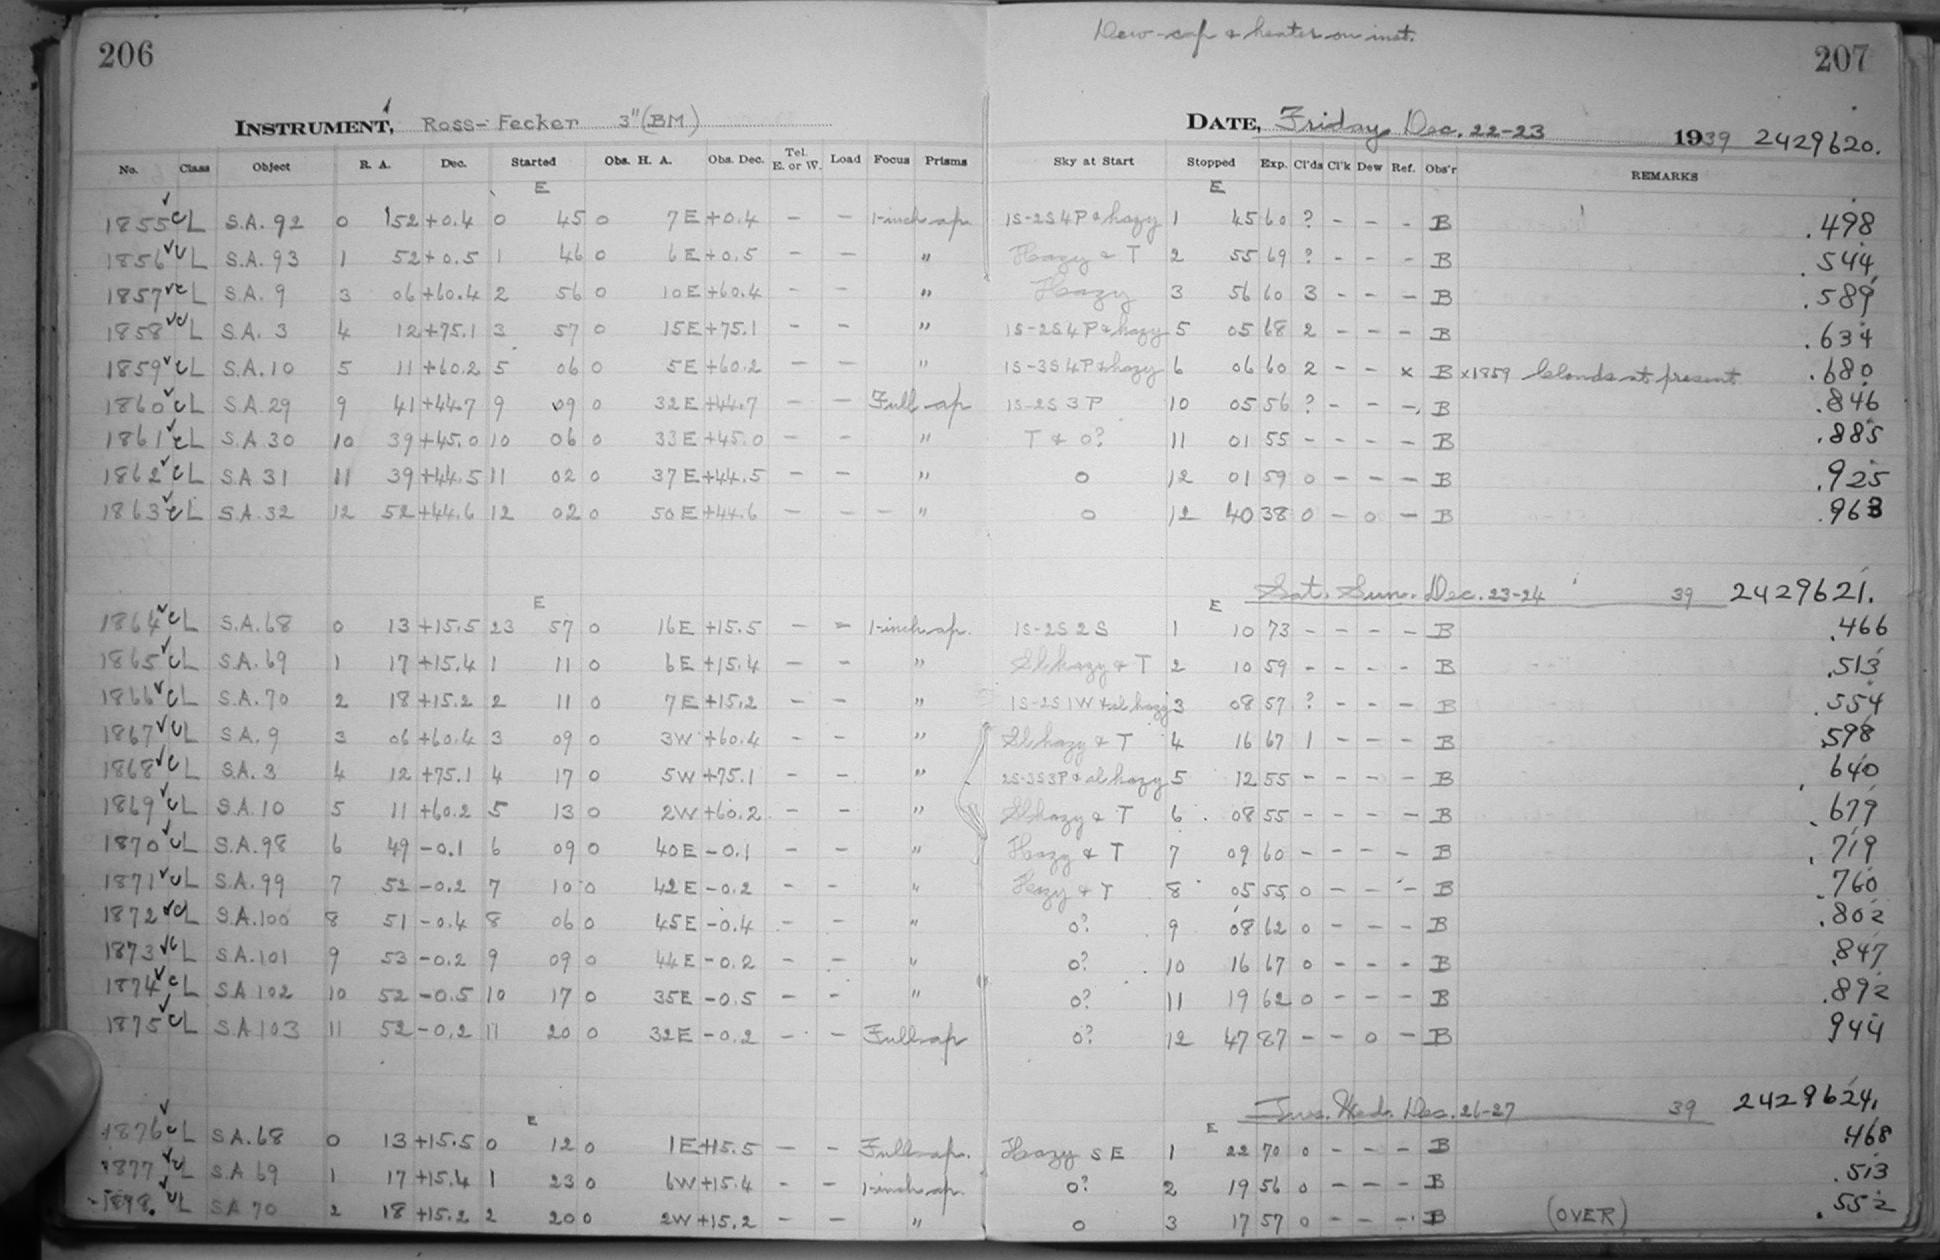 206
Dew-cap & heater on inst.
207
INSTRUMENT, Ross-Fecker 3"(BM)
DATE, Friday, Dec. 22-23 1939 2429620.
No. Class Object R. A. Dec. Started Obs. H. A. Obs. Dec. Tel. E. or W. Load Focus Prisms Sky at Start Stopped Exp. Cl'ds Cl'k Dew Ref. Obs'r REMARKS
E E
1855 ✓ C L S.A. 92 0 52 +0.4 0 45 0 7E +0.4 – – 1-inch ap. 1S-2S4P & hazy 1 45 60 ? – – – B .498
1856 ✓ C L S.A. 93 1 52 +0.5 1 46 0 6E +0.5 – – " Hazy & T 2 55 69 ? – – – B .544
1857 ✓ C L S.A. 9 3 06 +60.4 2 56 0 10E +60.4 – – " Hazy 3 56 60 3 – – – B .589
1858 ✓ C L S.A. 3 4 12 +75.1 3 57 0 15E +75.1 – – " 1S-2S4P & hazy 5 05 68 2 – – – B .634
1859 ✓ C L S.A. 10 5 11 +60.2 5 06 0 5E +60.2 – – " 1S-3S4P & hazy 6 06 60 2 – – x B x1859 Clouds at present .680
1860 ✓ C L S.A. 29 9 41 +44.7 9 09 0 32E +44.7 – – Full ap 1S-2S 3P 10 05 56 ? – – – B .846
1861 ✓ C L S.A. 30 10 39 +45.0 10 06 0 33E +45.0 – – " T & 0? 11 01 55 – – – – B .885
1862 ✓ C L S.A 31 11 39 +44.5 11 02 0 37E +44.5 – – " 0 12 01 59 0 – – – B .925
1863 ✓ C L S.A. 32 12 52 +44.6 12 02 0 50E +44.6 – – – " 0 12 40 38 0 – 0 – B .963
Sat. Sun. Dec. 23-24 39 2429621.
E E
1864 ✓ C L S.A. 68 0 13 +15.5 23 57 0 16E +15.5 – – 1-inch ap. 1S-2S 2S 1 10 73 – – – – B .466
1865 ✓ C L S.A. 69 1 17 +15.4 1 11 0 6E +15.4 – – " Sl hazy & T 2 10 59 – – – – B .513
1866 ✓ C L S.A. 70 2 18 +15.2 2 11 0 7E +15.2 – – " 1S-2S 1W & sl hazy 3 08 57 ? – – – B .554
1867 ✓ C L S.A. 9 3 06 +60.4 3 09 0 3W +60.4 – – " Sl hazy & T 4 16 67 1 – – – B .598
1868 ✓ C L S.A. 3 4 12 +75.1 4 17 0 5W +75.1 – – " 2S-3S3P & sl hazy 5 12 55 – – – – B .640
1869 ✓ C L S.A. 10 5 11 +60.2 5 13 0 2W +60.2 – – " Sl hazy & T 6 08 55 – – – – B .679
1870 ✓ C L S.A. 98 6 49 –0.1 6 09 0 40E –0.1 – – " Hazy & T 7 09 60 – – – – B .719
1871 ✓ C L S.A. 99 7 52 –0.2 7 10 0 42E –0.2 – – " Hazy & T 8 05 55 0 – – – B .760
1872 ✓ C L S.A. 100 8 51 –0.4 8 06 0 45E –0.4 – – " 0? 9 08 62 0 – – – B .802
1873 ✓ C L S.A. 101 9 53 –0.2 9 09 0 44E –0.2 – – " 0? 10 16 67 0 – – – B .847
1874 ✓ C L S.A 102 10 52 –0.5 10 17 0 35E –0.5 – – " 0? 11 19 62 0 – – – B .892
1875 ✓ C L S.A 103 11 52 –0.2 11 20 0 32E –0.2 – – Full ap 0? 12 47 87 – – 0 – B 944
Tues. Wed. Dec. 26-27 39 2429624.
E E
1876 ✓ C L S.A. 68 0 13 +15.5 0 12 0 1E +15.5 – – Full ap. Hazy SE 1 22 70 0 – – – B .468
1877 ✓ C L S.A 69 1 17 +15.4 1 23 0 6W +15.4 – – 1-inch ap. 0? 2 19 56 0 – – – B .513
1878 ✓ C L SA 70 2 18 +15.2 2 20 0 2W +15.2 – – " 0 3 17 57 0 – – – B (OVER) .552